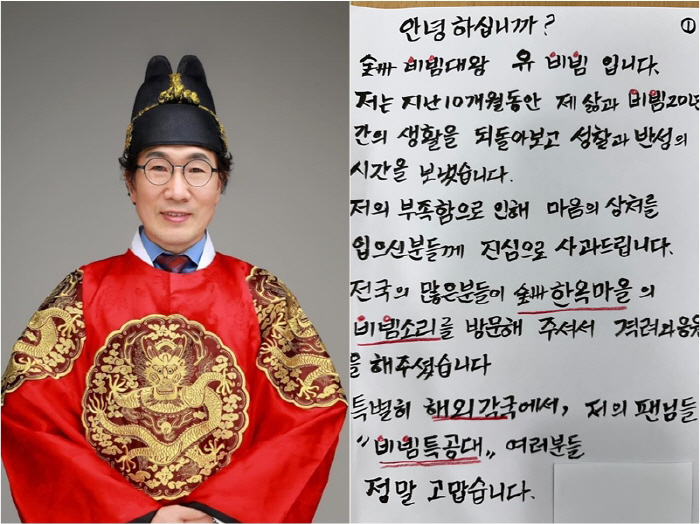 ①
안녕하십니까?
비빔대왕 유 비빔 입니다.
저는 지난 10개월동안 제 삶과 비빔20년
간의 생활을 되돌아보고 성찰과 반성의
시간을 보냈습니다.
저의 부족함으로 인해 마음의 상처를
입으신분들께 진심으로 사과드립니다.
전국의 많은분들이 한옥마을의
비빔소리를 방문해 주셔서 격려와응원
을 해주셨습니다
특별히 해외각국에서, 저의 팬님들
"비빔특공대" 여러분들
정말 고맙습니다.